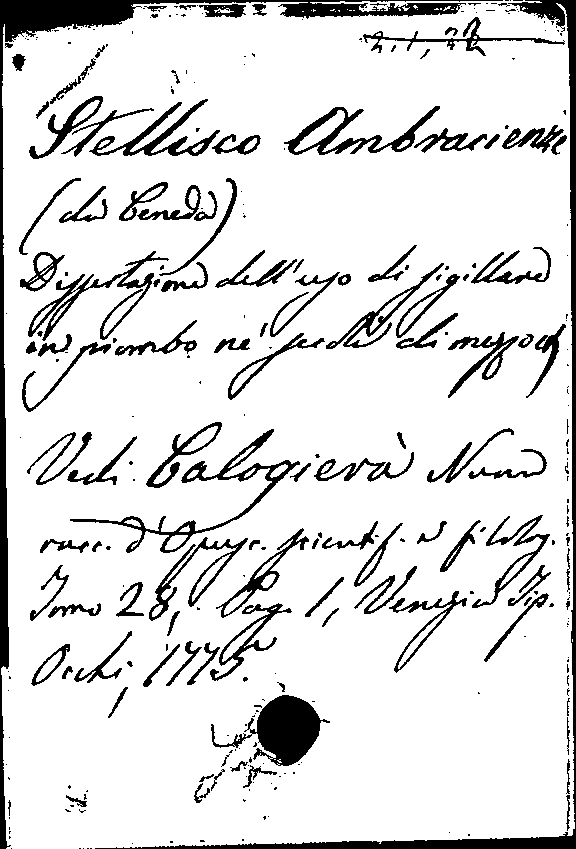 2. 1, 22
Stellisco Ambracienze
(da Ceneda)
Dissertazione dell'uso di sigillare
in piombo ne' secoli di mezzo
Vedi Calogierà Nuova
racc. d'Opusc. scientif. e filolog.
Tomo 28, Pag. 1, Venezia Tip.
Occhi, 1775.